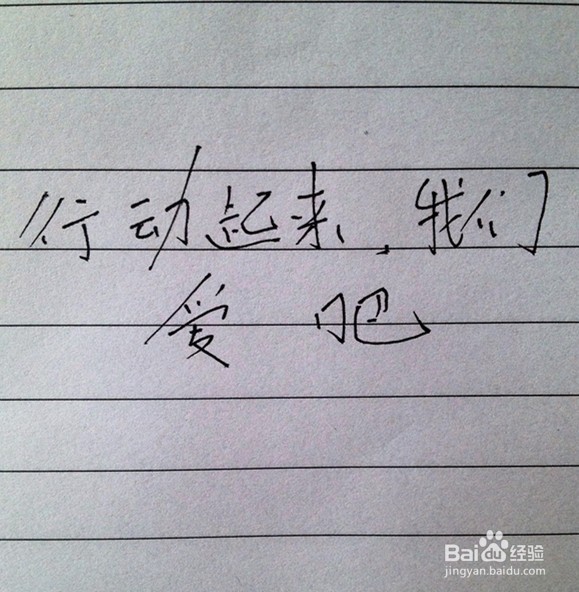 行动起来，我们
爱吧
Baidu经验
jingyan.baidu.com